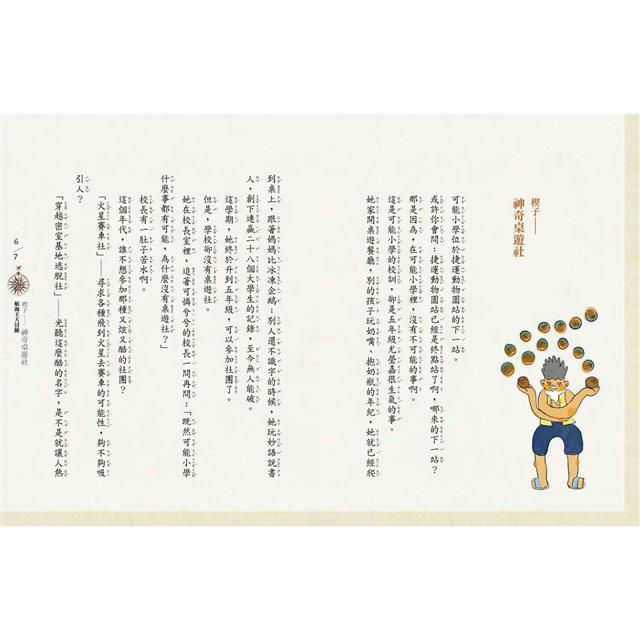 楔子——
神奇桌遊社
可能小學位於捷運動物園站的下一站。
或許你會問：捷運動物園站已經是終點站了啊，哪來的下一站？
那是因為，在可能小學裡，沒有不可能的事啊。
這是可能小學的校訓，卻是五年級尤瑩嘉很生氣的事。
她家開桌遊餐廳，別的孩子玩奶嘴、抱奶瓶的年紀，她就已經爬
到桌上，跟著媽媽比冰凍企鵝；別人還不識字的時候，她玩妙語說書
人，創下連贏二十八個大學生的記錄，至今無人能破。
這學期，她終於升到五年級，可以參加社團了。
但是，學校卻沒有桌遊社。
她在校長室裡，追著可憐兮兮的校長一問再問：「既然可能小學
什麼事都有可能，為什麼沒有桌遊社？」
校長有一肚子苦水啊。
這個年代，誰不想參加那種又炫又酷的社團？
「火星賽車社」——尋求各種飛到火星去賽車的可能性，夠不夠吸
引人？
「穿越密室基地逃脫社」——光聽這麼酷的名字，是不是就讓人熱
6／7
航海王大冒險
楔子——神奇桌遊社